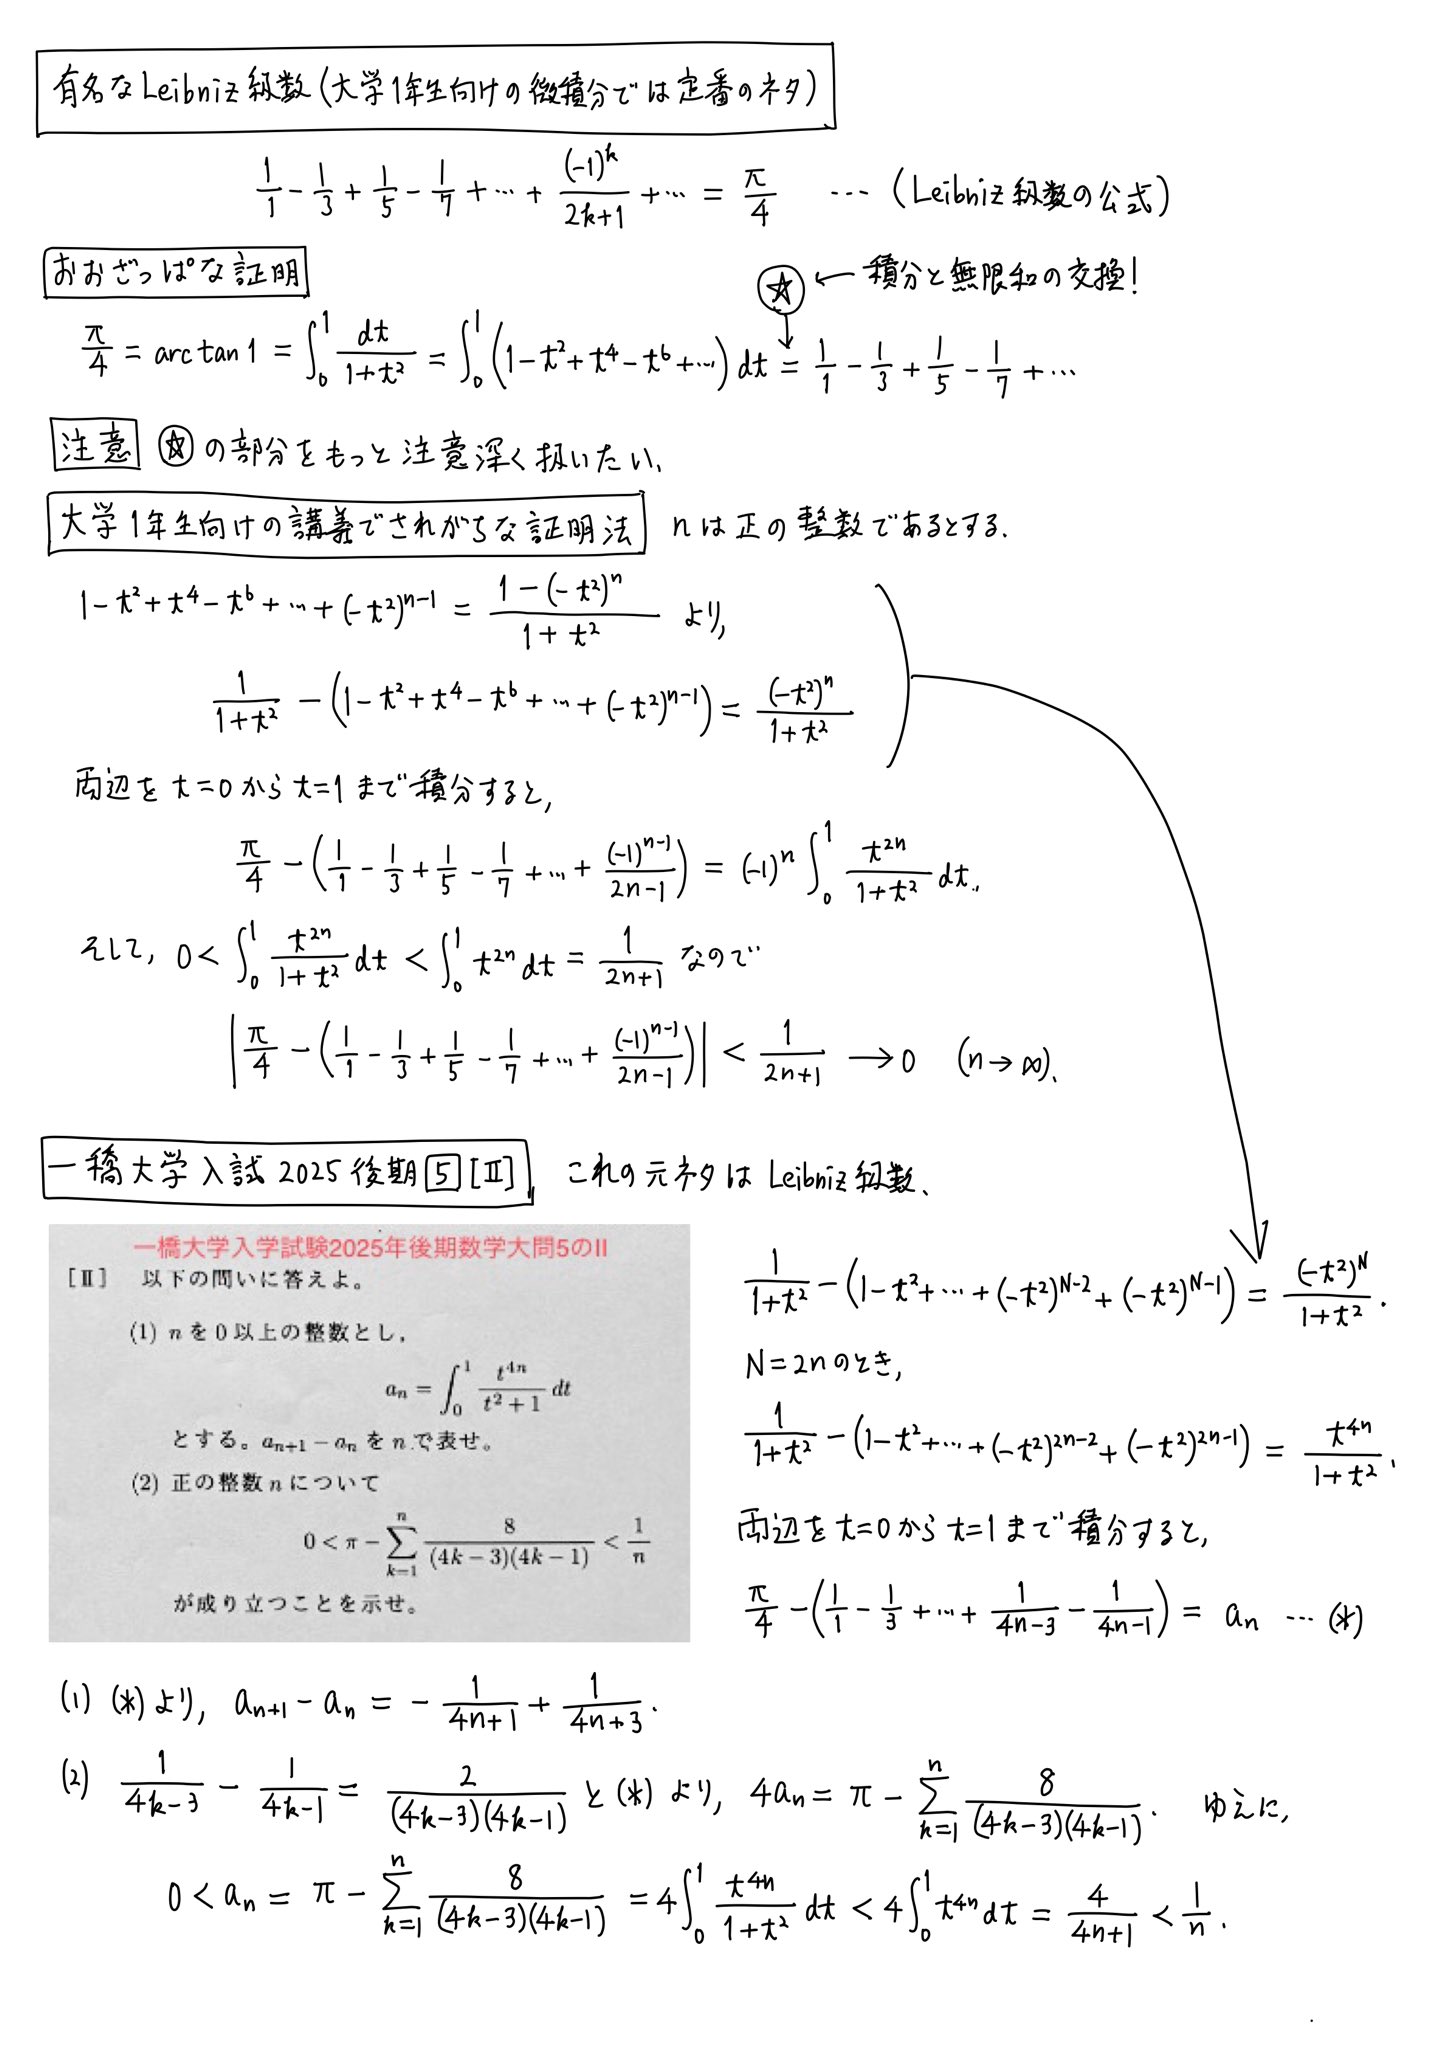 有名なLeibniz級数(大学1年生向けの微積分では定番のネタ)
1/1 - 1/3 + 1/5 - 1/7 + … + (-1)^k/(2k+1) + … = π/4 … (Leibniz級数の公式)
おおざっぱな証明
☆ ← 積分と無限和の交換!
π/4 = arctan 1 = ∫_0^1 dt/(1+t²) = ∫_0^1 (1-t²+t⁴-t⁶+…) dt = 1/1 - 1/3 + 1/5 - 1/7 + …
注意 ☆の部分をもっと注意深く扱いたい.
大学1年生向けの講義でされがちな証明法 nは正の整数であるとする.
1-t²+t⁴-t⁶+…+(-t²)^{n-1} = (1-(-t²)^n)/(1+t²) より,
1/(1+t²) - (1-t²+t⁴-t⁶+…+(-t²)^{n-1}) = (-t²)^n/(1+t²)
両辺をt=0からt=1まで積分すると,
π/4 - (1/1 - 1/3 + 1/5 - 1/7 + … + (-1)^{n-1}/(2n-1)) = (-1)^n ∫_0^1 t^{2n}/(1+t²) dt.
そして, 0 < ∫_0^1 t^{2n}/(1+t²) dt < ∫_0^1 t^{2n} dt = 1/(2n+1) なので
|π/4 - (1/1 - 1/3 + 1/5 - 1/7 + … + (-1)^{n-1}/(2n-1))| < 1/(2n+1) → 0 (n→∞).
一橋大学入試2025後期5[II] これの元ネタはLeibniz級数.
一橋大学入学試験2025年後期数学大問5のII
[II] 以下の問いに答えよ。
(1) nを0以上の整数とし,
a_n = ∫_0^1 t^{4n}/(t²+1) dt
とする。a_{n+1} - a_n をnで表せ。
(2) 正の整数nについて
0 < π - Σ_{k=1}^n 8/((4k-3)(4k-1)) < 1/n
が成り立つことを示せ。
1/(1+t²) - (1-t²+…+(-t²)^{N-2}+(-t²)^{N-1}) = (-t²)^N/(1+t²).
N=2nのとき,
1/(1+t²) - (1-t²+…+(-t²)^{2n-2}+(-t²)^{2n-1}) = t^{4n}/(1+t²).
両辺をt=0からt=1まで積分すると,
π/4 - (1/1 - 1/3 + … + 1/(4n-3) - 1/(4n-1)) = a_n … (*)
(1) (*)より, a_{n+1} - a_n = - 1/(4n+1) + 1/(4n+3).
(2) 1/(4k-3) - 1/(4k-1) = 2/((4k-3)(4k-1)) と(*)より, 4a_n = π - Σ_{k=1}^n 8/((4k-3)(4k-1)). ゆえに,
0 < a_n = π - Σ_{k=1}^n 8/((4k-3)(4k-1)) = 4∫_0^1 t^{4n}/(1+t²) dt < 4∫_0^1 t^{4n} dt = 4/(4n+1) < 1/n.